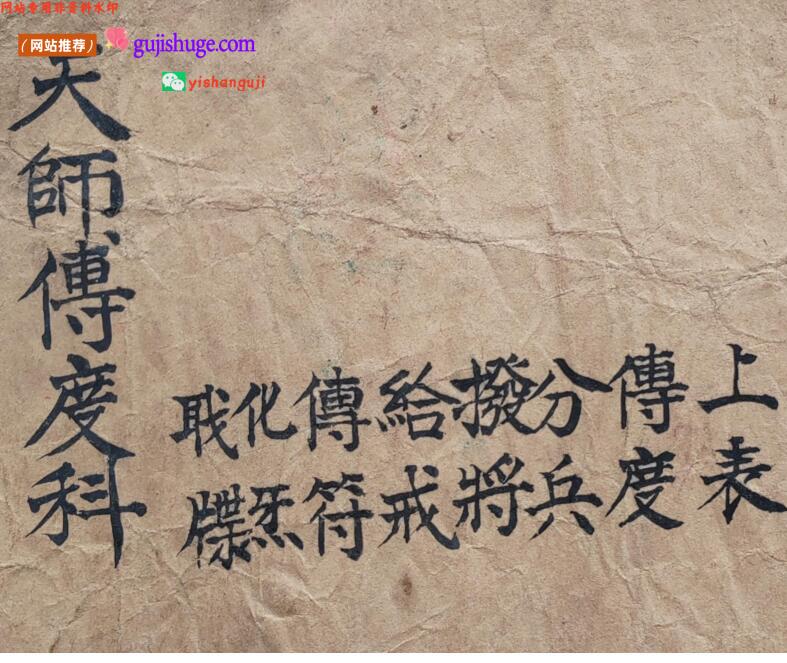 网站专用非资料水印
(网站推荐)
gujishuge.com
yishanguji
上表
傳度
分兵
撥將
給戒
傳符
化炁
职牒
天師傳度科